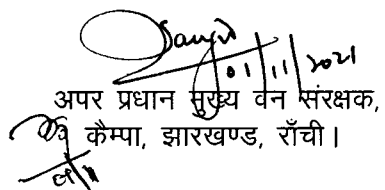 01/11/2021
अपर प्रधान मुख्य वन संरक्षक,
कैम्पा, झारखण्ड, राँची।